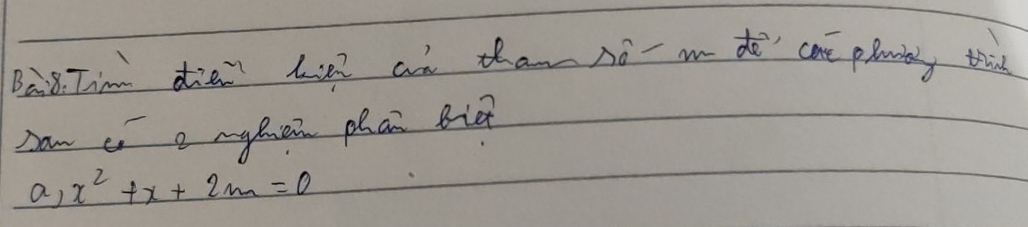 Bài 8. Tìm điều kiện của tham số m để các phương trình
sau có 2 nghiệm phân biệt
a, x² + x + 2m = 0